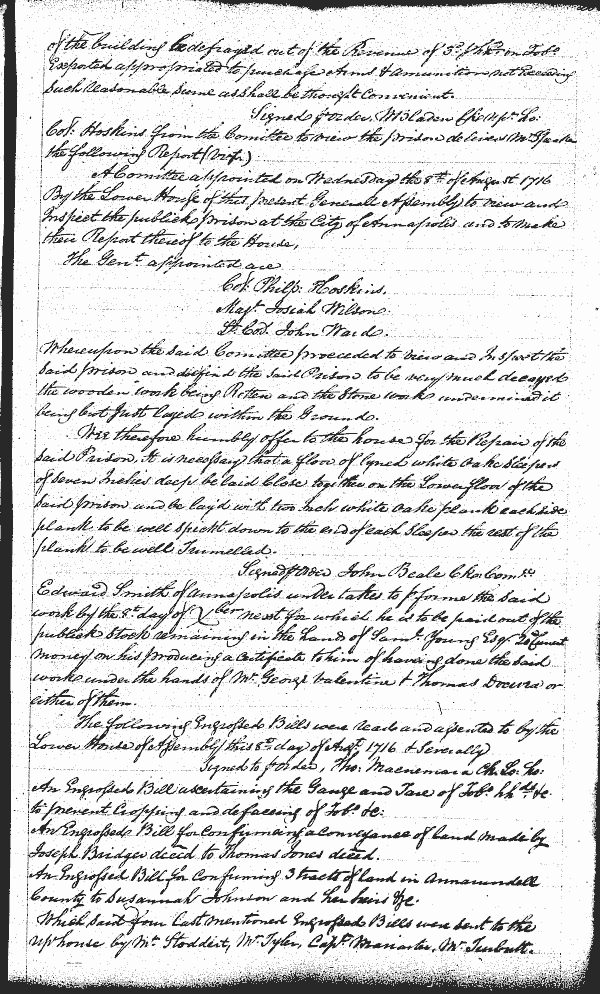 of the building be defrayed out of the Revenue of 3d. p hhd on Tobo.
Exported appropriated to purchase Arms & amunition not Exceeding
such reasonable sume as shall be thought Convenient.
Signed p order, W Bladen Clr. up. ho:
Col. Hoskins from the Comittee to view the prison delivers Mr. Speaker
the following Report (Vizt.)
A Comittee appointed on Wednesday the 8th of August 1716
By the Lower House of this present Generall Assembly to view and
Inspect the publick prison at the City of Annapolis and to make
their Report thereof to the House,
The Gent. appointed are
Col. Philp. Hoskins.
Majr. Josiah Wilson.
Lt. Col. John Ward.
Whereupon the said Comittee proceeded to view and Inspect the
said prison and do find the said Prison to be very much decayed
the wooden work being Rotten and the Stone work undermined it
being but Just layed within the Ground.
Wee therefore humbly offer to the house for the Repair of the
said Prison. It is necessary that a floor of white oake Sleepers
of seven Inches deep be laid Close together on the Lower floor of the
said prison and be layd with two Inch white oake plank each side
plank to be well Spickt down to the end of each Sleeper the rest of the
planks to be well Trunnelled.
Signed p order John Beale Clk Com.
Edward Smith of annapolis undertakes to p forme the said
work by the day of Xber next for which he is to be paid out of the
publick Stock remaining in the hands of Saml. Young Esqr.
money on his producing a Certificate to him of haveing done the said
work under the hands of Mr. George Valentine & Thomas Docura or
either of them.
The following Engrossed Bills were read and assented to by the
Lower House of Assembly this 8th day of Augt. 1716 & Severally
Signed p order, Tho: Macnemara Clk Lo: ho:
An Engrossed Bill ascertaining the Gauge and Tare of Tobo. hhds &c
to prevent Cropping and defaceing of Tobo. &c.
An Engrossed Bill for Confirming a Conveyance of land made by
Joseph Bridges deced to Thomas Jones deced.
An Engrossed Bill for Confirming 3 tracts of land in Annarundell
County to Susannah Johnson and her heirs &c.
Which said four Last mentioned Engrossed Bills were sent to the
up house by Mr. Stoddert, Mr. Tyler, Capt. Mr. Turbutt.